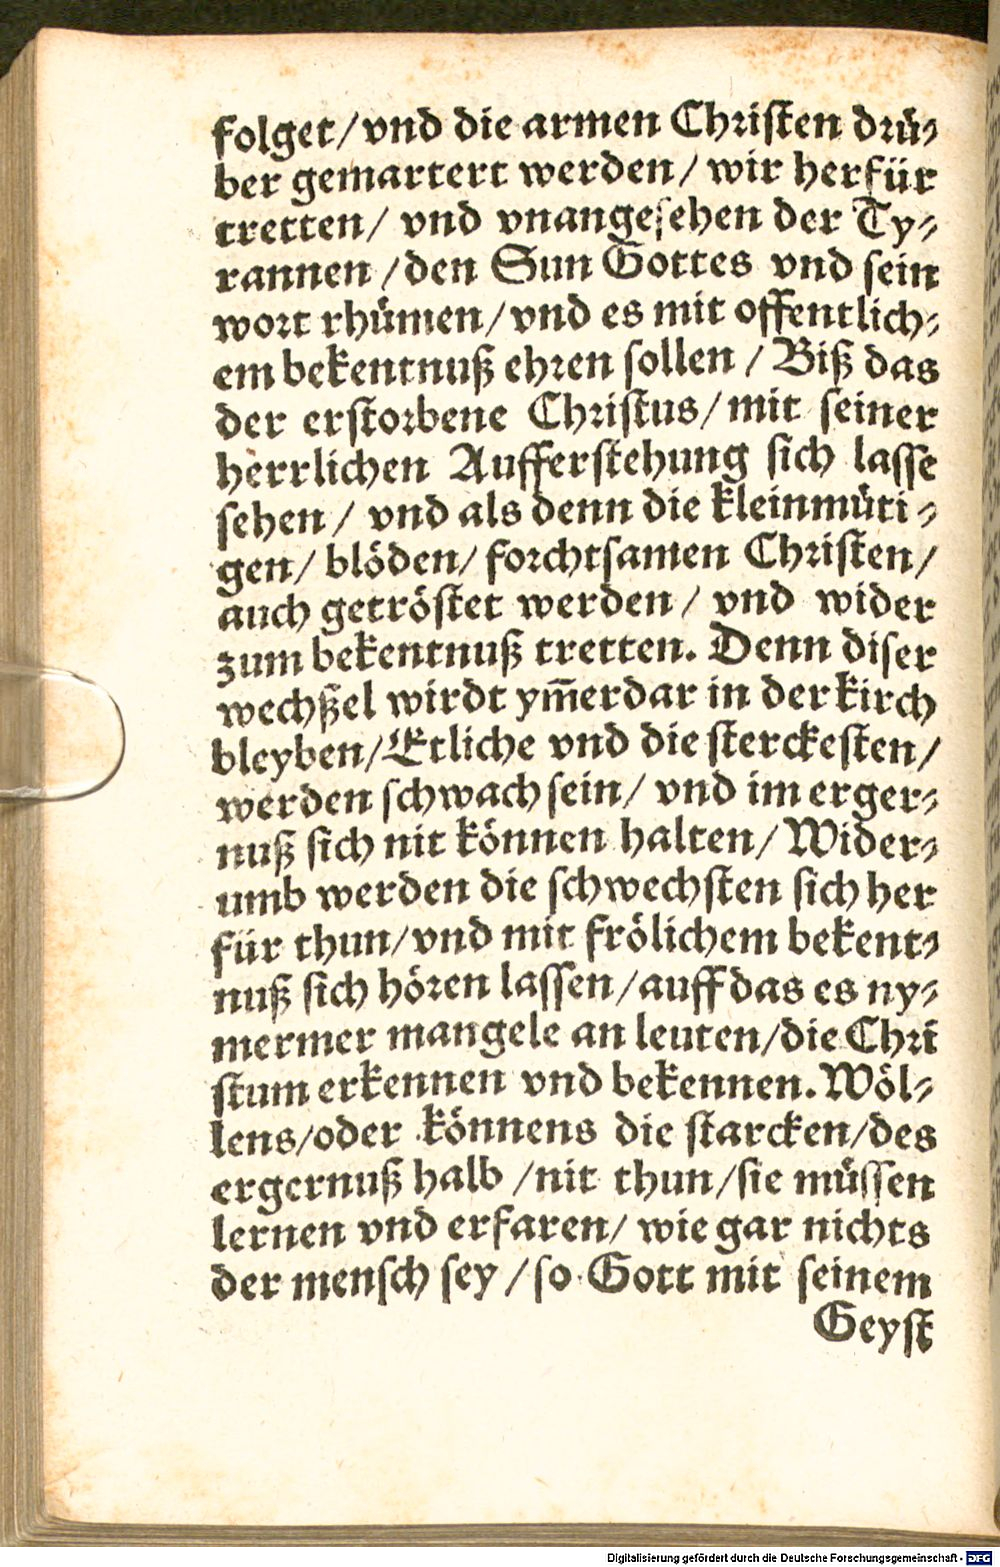 folget/vnd die armen Christen drü-
ber gemartert werden/ wir herfür
tretten/ vnd vnangesehen der Ty-
rannen /den Sun Gottes vnd sein
wort rhümen/vnd es mit offentlich-
em bekentnuß ehren sollen / Biß das
der erstorbene Christus/mit seiner
herrlichen Aufferstehung sich lasse
sehen / vnd als denn die kleinmüti-
gen/ blöden/ forchtsamen Christen/
auch getröstet werden/ vnd wider
zum bekentnuß tretten. Denn diser
wechßel wirdt ym̃erdar in der kirch
bleyben/Etliche vnd die sterckesten/
werden schwach sein/ vnd im erger-
nuß sich nit können halten/ Wider-
umb werden die schwechsten sich her
für thun/vnd mit frölichem bekent-
nuß sich hören lassen/auff das es ny-
mermer mangele an leuten/die Chri
stum erkennen vnd bekennen. Wöl-
lens/oder könnens die starcken/des
ergernuß halb /nit thun/sie müssen
lernen vnd erfaren/ wie gar nichts
der mensch sey /so Gott mit seinem
Geyst
Digitalisierung gefördert durch die Deutsche Forschungsgemeinschaft - DFG